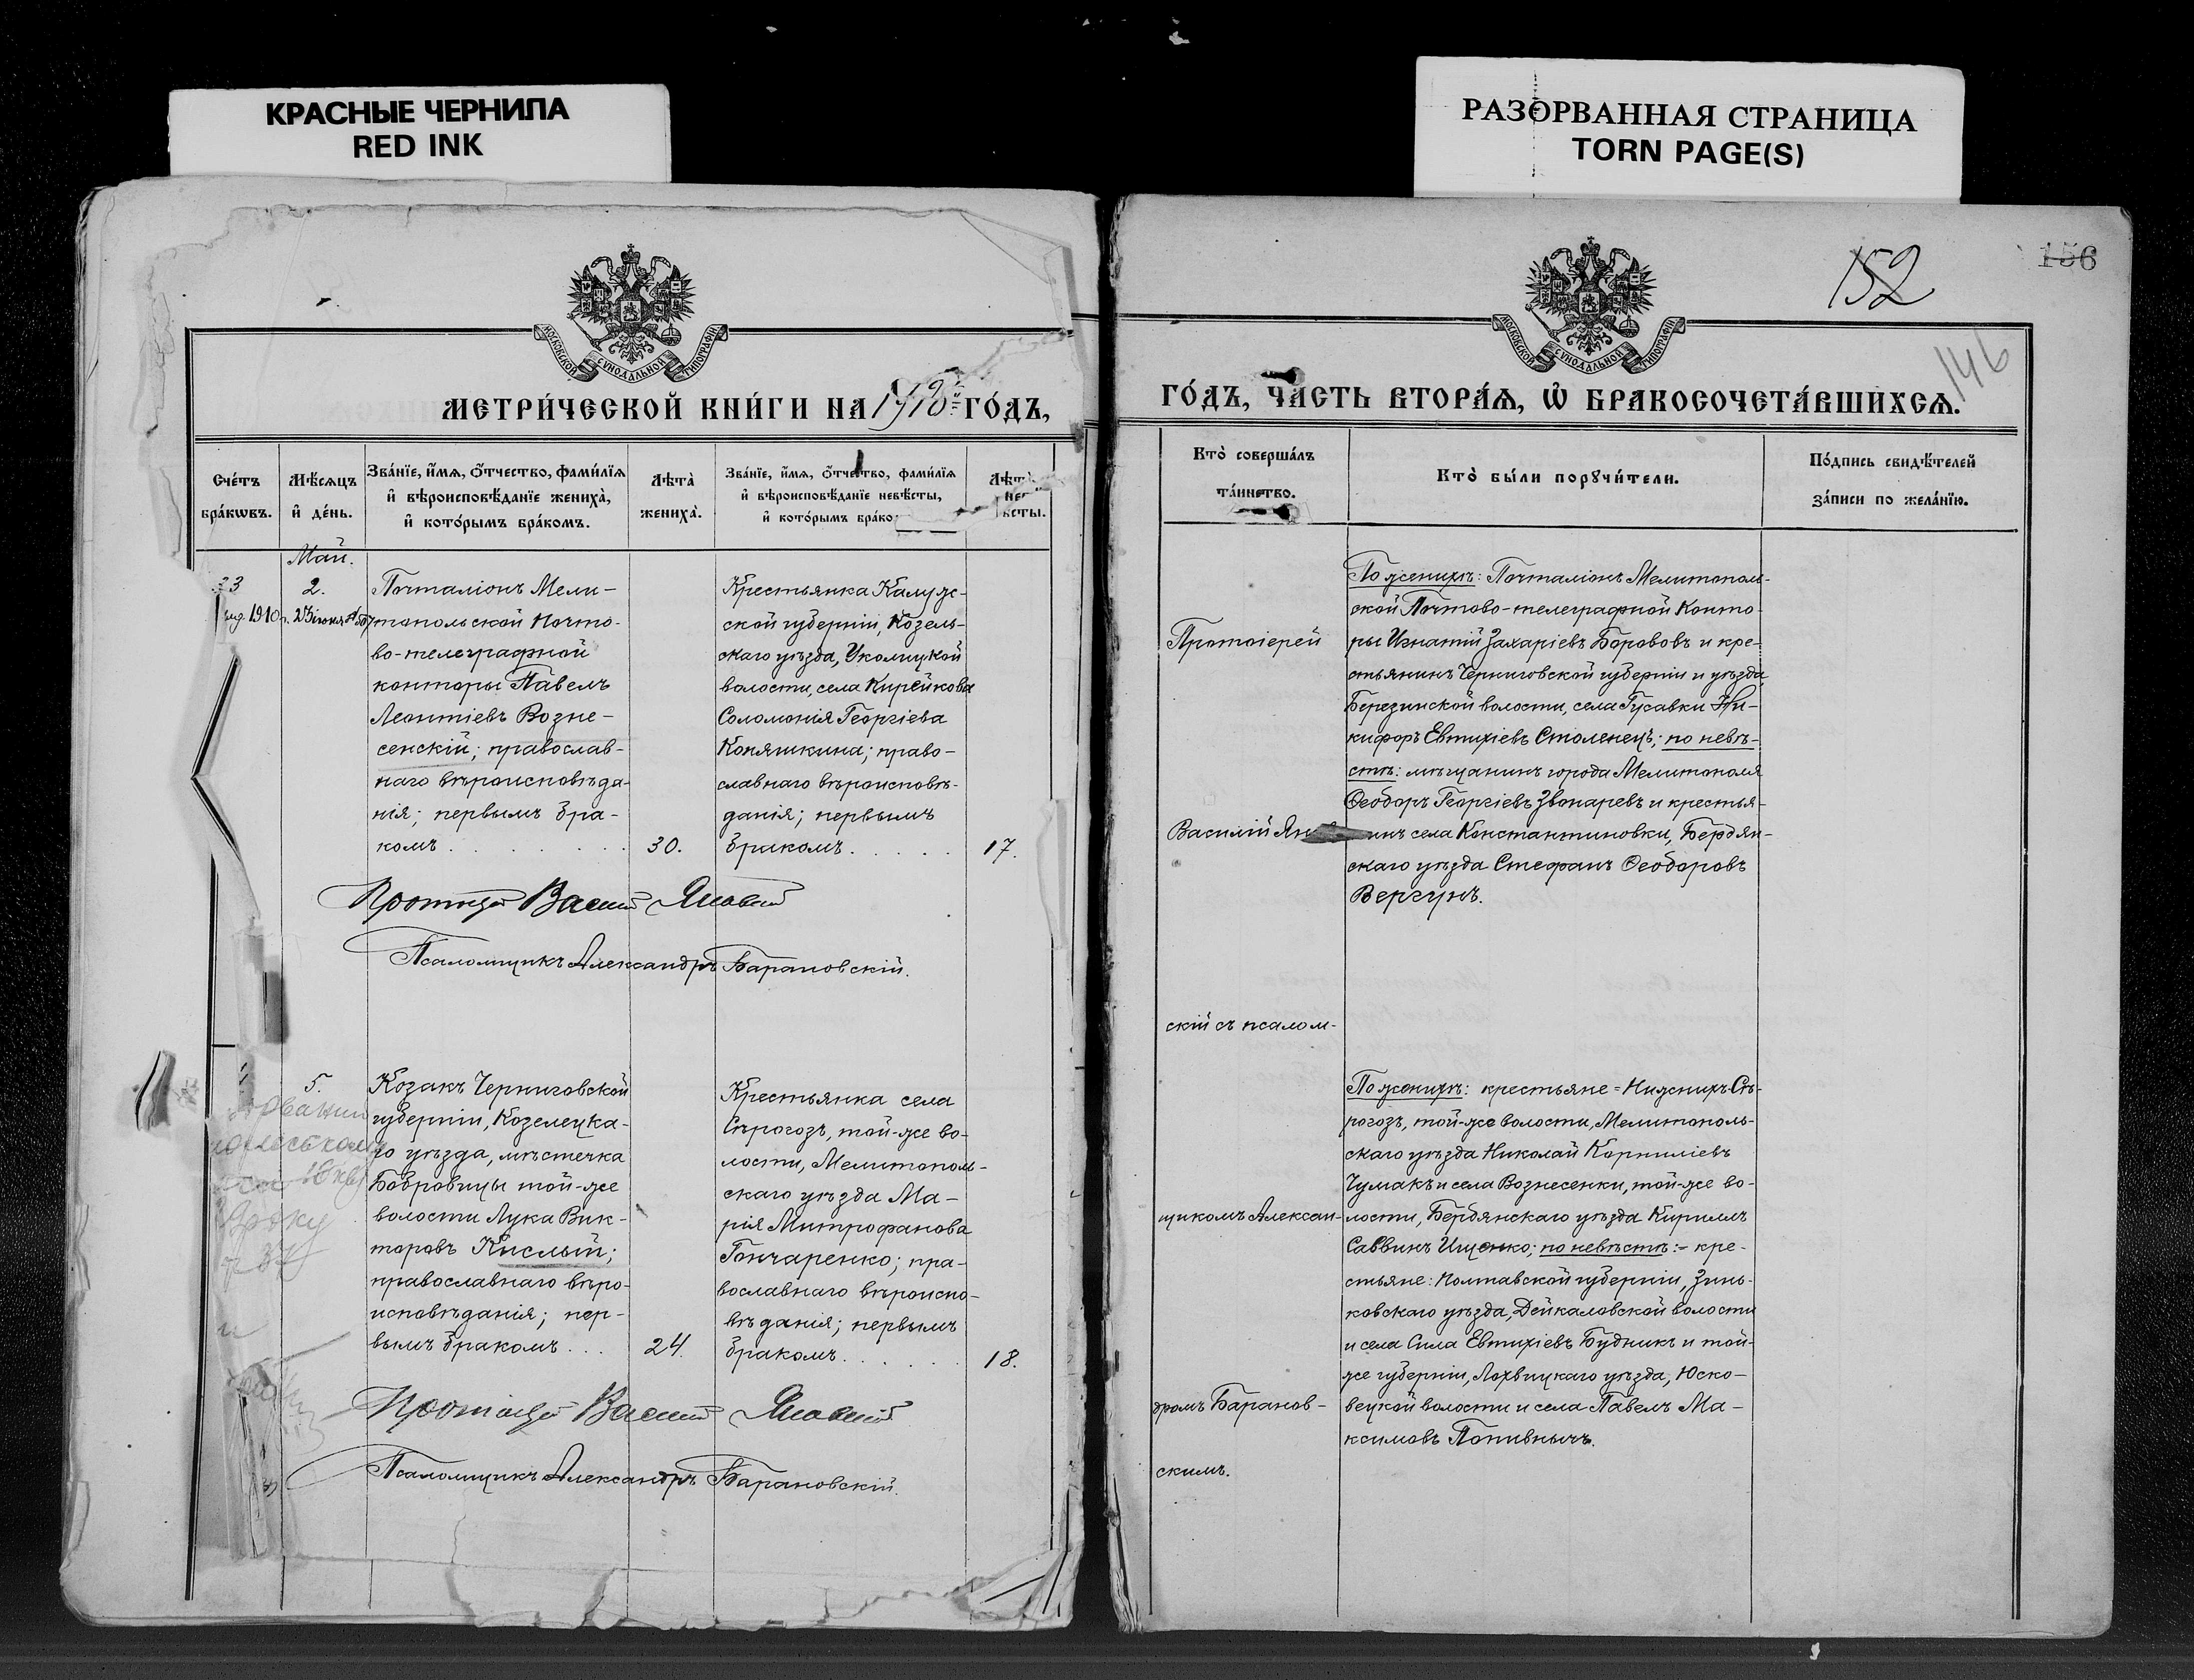 КРАСНЫЕ ЧЕРНИЛА
RED INK
РАЗОРВАННАЯ СТРАНИЦА
TORN PAGE(S)
МОСКОВСКОЙ СѴНОДАЛЬНОЙ ТИПОГРАФІИ
МЕТРИ́ЧЕСКОЙ КНИ́ГИ НА 1910й ГО́ДЪ,
Сче́тъ бра́кѡвъ.
Мѣ́сяцъ и҆ де́нь.
Зва́нїе, и҆́мѧ, ѻ҆́тчество, фами́лїѧ
и҆ вѣроисповѣ́данїе жениха̀,
и҆ кото́рымъ бра́комъ.
Лѣта̀ жениха̀.
Зва́нїе, и҆́мѧ, ѻ҆́тчество, фами́лїѧ
и҆ вѣроисповѣ́данїе невѣ́сты,
и҆ кото́рымъ
Май.
2.
Почталіонъ Мели-
топольской почто-
во-телеграфной
конторы Павелъ
Леонтіевъ Возне-
сенскій; православ-
наго вѣроисповѣда-
нія; первымъ бра-
комъ . . . . . .
30.
Крестьянка Калуж-
ской губерніи, Козель-
скаго уѣзда, Уколицкой
волости, села Кирейкова
Соломонія Георгіева
Коняшкина; право-
славнаго вѣроисповѣ-
данія; первымъ
бракомъ. . . . .
17.
1910
Протоіерей Василій
Псаломщикъ Александръ Барановскій.
5.
Козакъ Черниговской
губерніи, Козелецка-
го уѣзда, мѣстечка
Бобровицы той-же
волости Лука Вик-
торовъ Кислый;
православнаго вѣро-
исповѣданія; пер-
вымъ бракомъ . . .
24.
Крестьянка села
Сѣрогозъ, той-же во-
лости, Мелитополь-
скаго уѣзда Ма-
рія Митрофанова
Гончаренко; пра-
вославнаго вѣроиспо-
вѣданія; первымъ
бракомъ. . . . . .
18.
Протоіерей Василій
Псаломщикъ Александръ Барановскій.
152
156
146
МОСКОВСКОЙ СѴНОДАЛЬНОЙ ТИПОГРАФІИ
ГО́ДЪ, ЧА́СТЬ ВТОРА́Ѧ, Ѡ҆ БРАКОСОЧЕТА́ВШИХСѦ.
Кто̀ соверша́лъ
та́инство.
Кто̀ бы́ли порꙋчи́тели.
По́дпись свидѣ́телей
за́писи по жела́нїю.
Протоіерей
Василій
скій съ псалом-
щикомъ Алексан-
дромъ Баранов-
скимъ.
По женихѣ: Почталіонъ Мелитополь-
ской Почтово-телеграфной Конто-
ры Игнатій Захаріевъ Борововъ и кре-
стьянинъ Черниговской губерніи и уѣзда,
Березинской волости, села Гусавки Ни-
кифоръ Евтихіевъ Столенецъ; по невѣ-
стѣ: мѣщанинъ города Мелитополя
Ѳеодоръ Георгіевъ Звонаревъ и крестья-
нинъ села Константиновки, Бердян-
скаго уѣзда Стефанъ Ѳеодоровъ
Вергунъ.
По женихѣ: крестьяне = Нижнихъ-Сѣ-
рогозъ, той-же волости, Мелитополь-
скаго уѣзда Николай Корниліевъ
Чумакъ и села Вознесенки, той-же во-
лости, Бердянскаго уѣзда Кириллъ
Саввинъ Ищенко; по невѣстѣ: - кре-
стьяне: Полтавской губерніи, Зинь-
ковскаго уѣзда, Дейкаловской волости
и села Сила Евтихіевъ Будникъ и той-
же губерніи, Лохвицкаго уѣзда, Юско-
вецкой волости и села Павелъ Ма-
ксимовъ Попивнычъ.